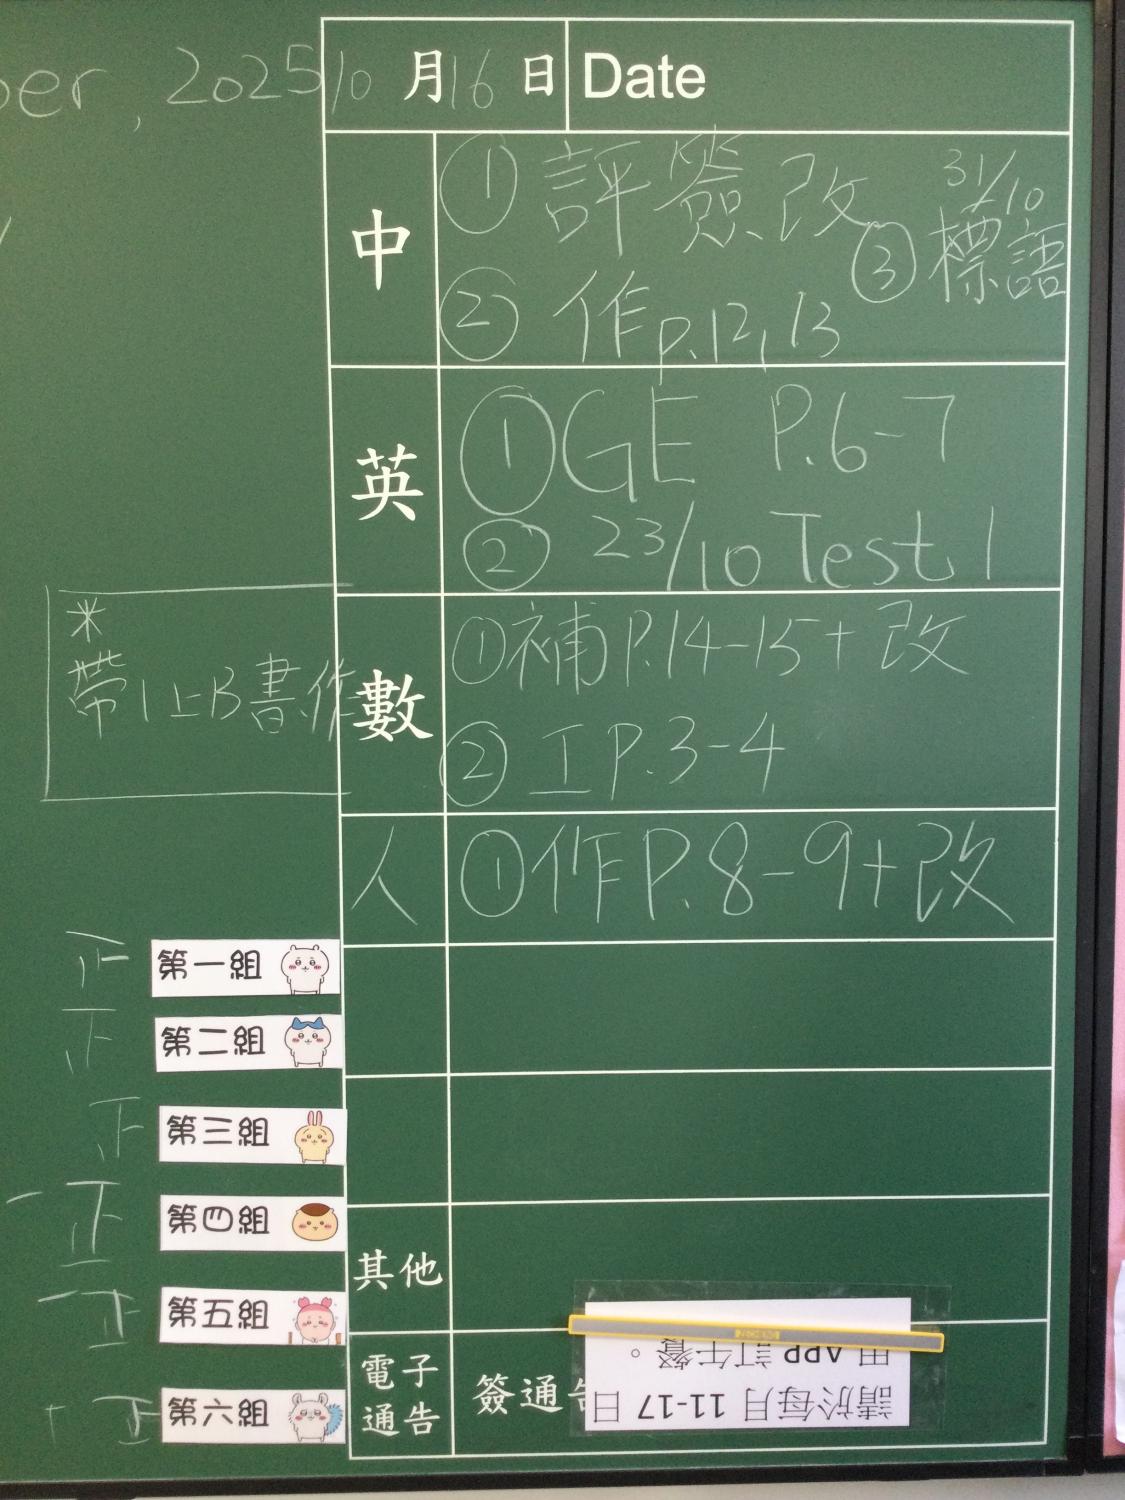 ber, 2025
10月16日 Date
中
① 評簽改
② 作p.12,13
③ 31/10 標語
英
① GE P.6-7
② 23/10 Test 1
*
帶1上B書.作
數
① 補P.14-15+改
② 工P.3-4
人
① 作P.8-9+改
正 第一組
正 第二組
正 第三組
一正 第四組
一正 第五組
正 第六組
其他
電子
通告
簽通告
請於每月 11-17 日
用 APP 訂午餐。